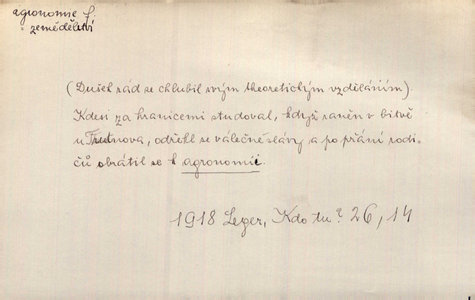 agronomie f.
= zemědělství
(Dušek rád se chlubil svým theoretickým vzděláním)
Kdesi za hranicemi studoval, když raněn v bitvě
u Trutnova, odřekl se válečné slávy a po přání rodi-
čů obrátil se k agronomii.
1918 Leger, Kdo tu? 26, 14